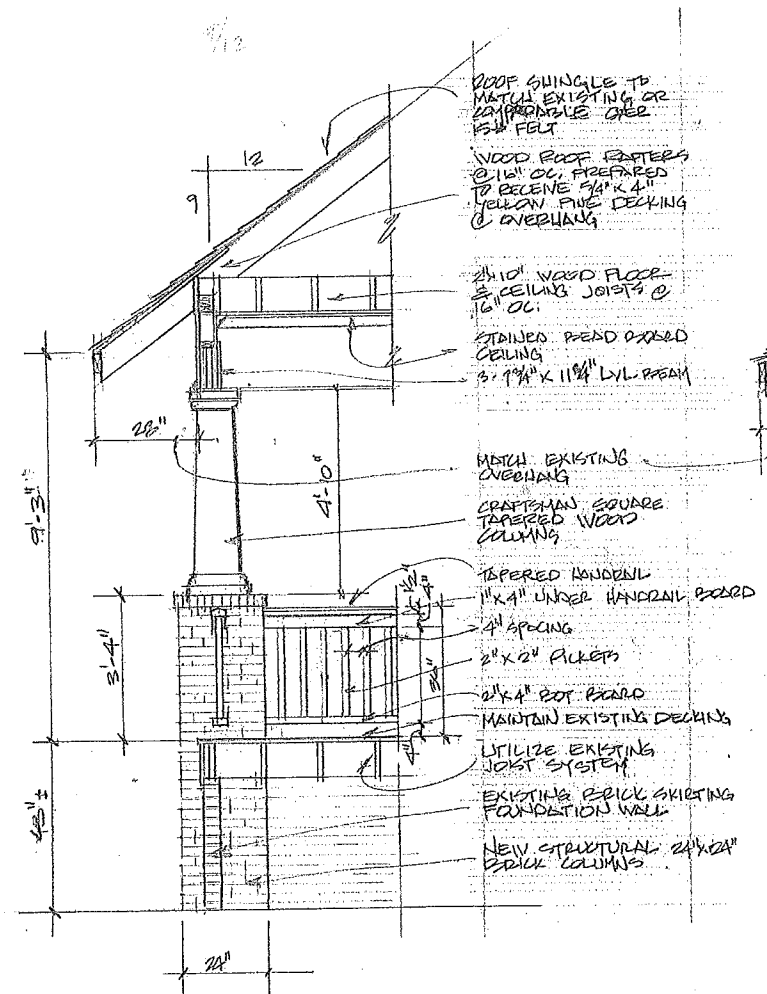 9/12
ROOF SHINGLE TO
MATCH EXISTING OR
COMPARABLE OVER
15# FELT
12
9
WOOD ROOF RAFTERS
@ 16" OC. PREPARED
TO RECEIVE 5/4" X 4"
YELLOW PINE DECKING
@ OVERHANG
2"X10" WOOD FLOOR
& CEILING JOISTS @
16" OC.
STAINED BEAD BOARD
CEILING
3- 1 3/4" X 11 3/4" LVL. BEAM
28"
4'-10"
9'-3"
MATCH EXISTING
OVERHANG
CRAFTSMAN SQUARE
TAPERED WOOD
COLUMNS
TAPERED HANDRAIL
1"X4" UNDER HANDRAIL BOARD
4" SPACING
2"X2" PICKETS
2"X4" BOT BOARD
MAINTAIN EXISTING DECKING
3'-4"
4"
36"
4"
UTILIZE EXISTING
JOIST SYSTEM
EXISTING BRICK SKIRTING
FOUNDATION WALL
48" ±
NEW STRUCTURAL 24"X24"
BRICK COLUMNS
24"